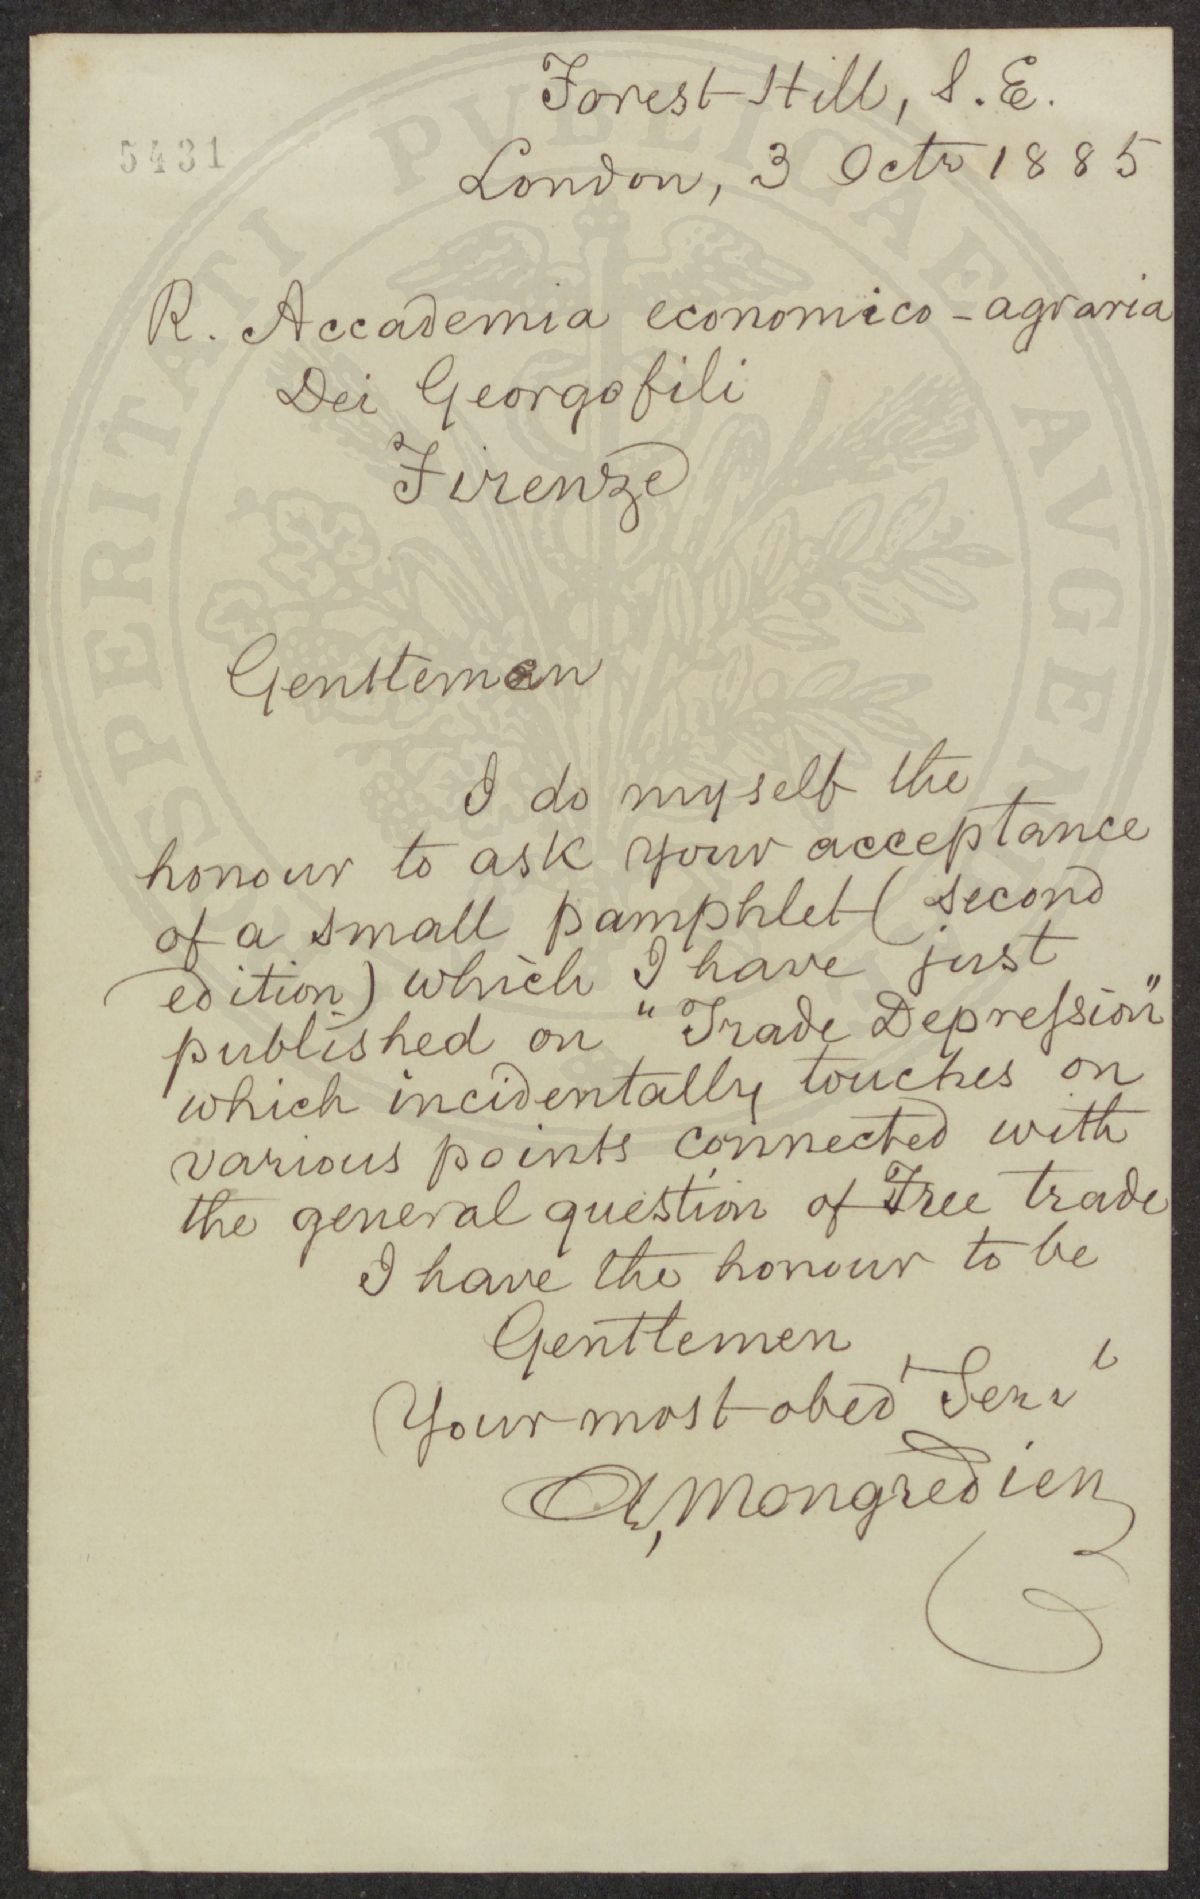 Forest Hill, S.E.
5431
London, 3 Octr 1885
R. Accademia economico-agraria
Dei Georgofili
Firenze
Gentlemen
I do myself the
honour to ask your acceptance
of a small pamphlet (second
edition) which I have just
published on "Trade Depression"
which incidentally touches on
various points connected with
the general question of Free trade
I have the honour to be
Gentlemen
Your most obedt Servt
A, Mongredien